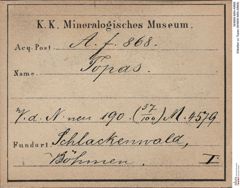 K. K. Mineralogisches Museum.
Acq.-Post A. f. 868.
Name Topas.
V. d. N. neu 190. (37/100) M. 4579
Fundort Schlackenwald,
Böhmen. I.